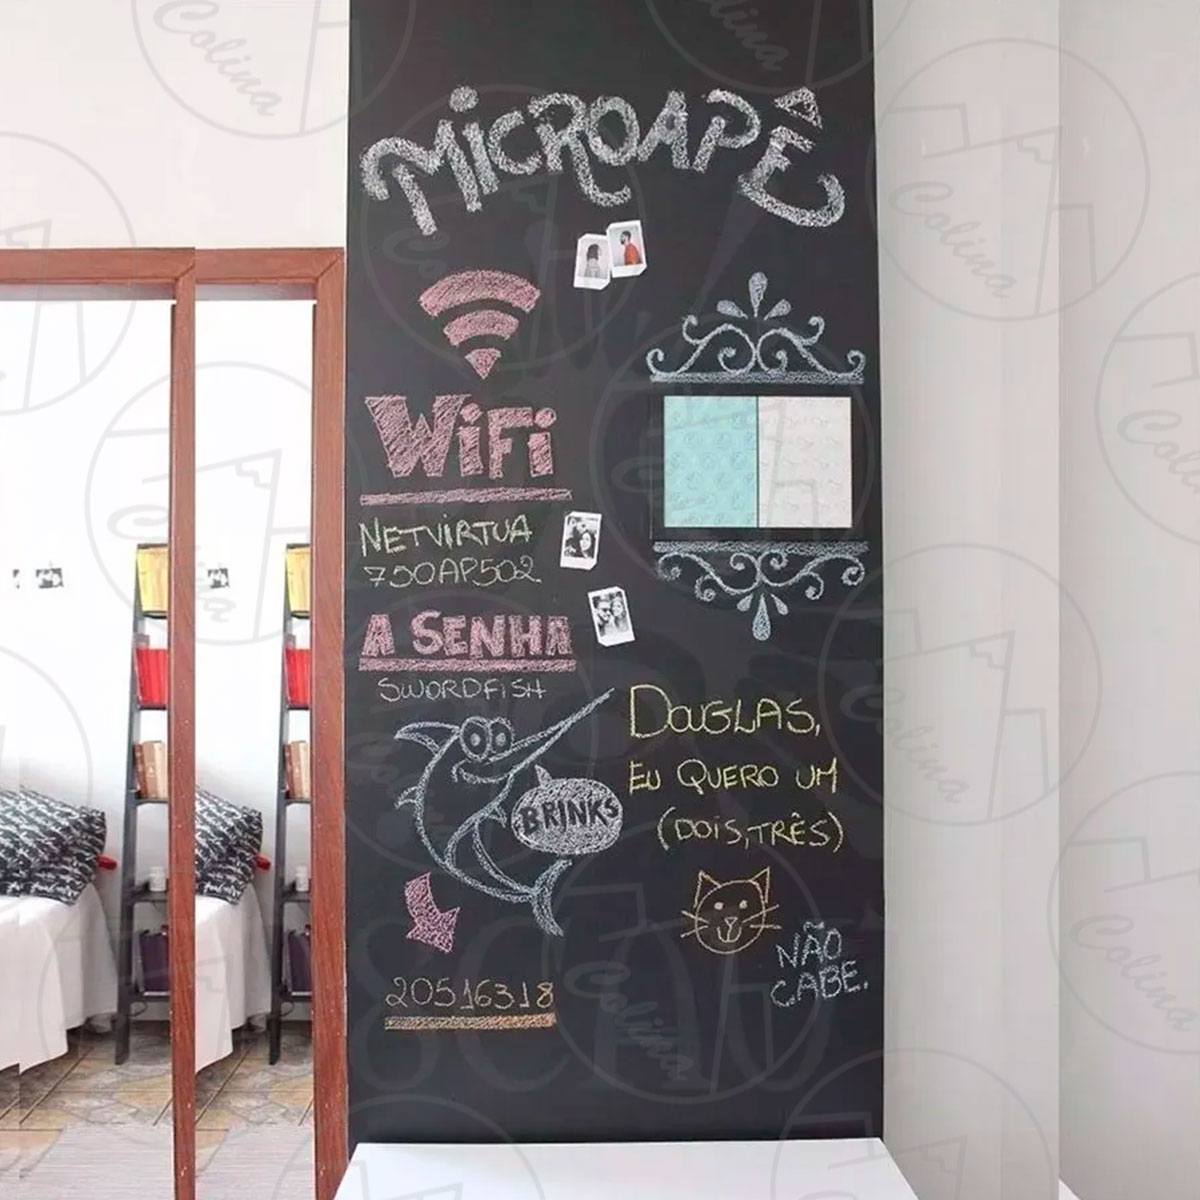 MICROAPÊ
WiFi
NETVIRTUA
750AP502
A SENHA
SWORDFISH
BRINKS
20516318
DOUGLAS,
EU QUERO UM
(DOIS,TRÊS)
NÃO
CABE.
Colina